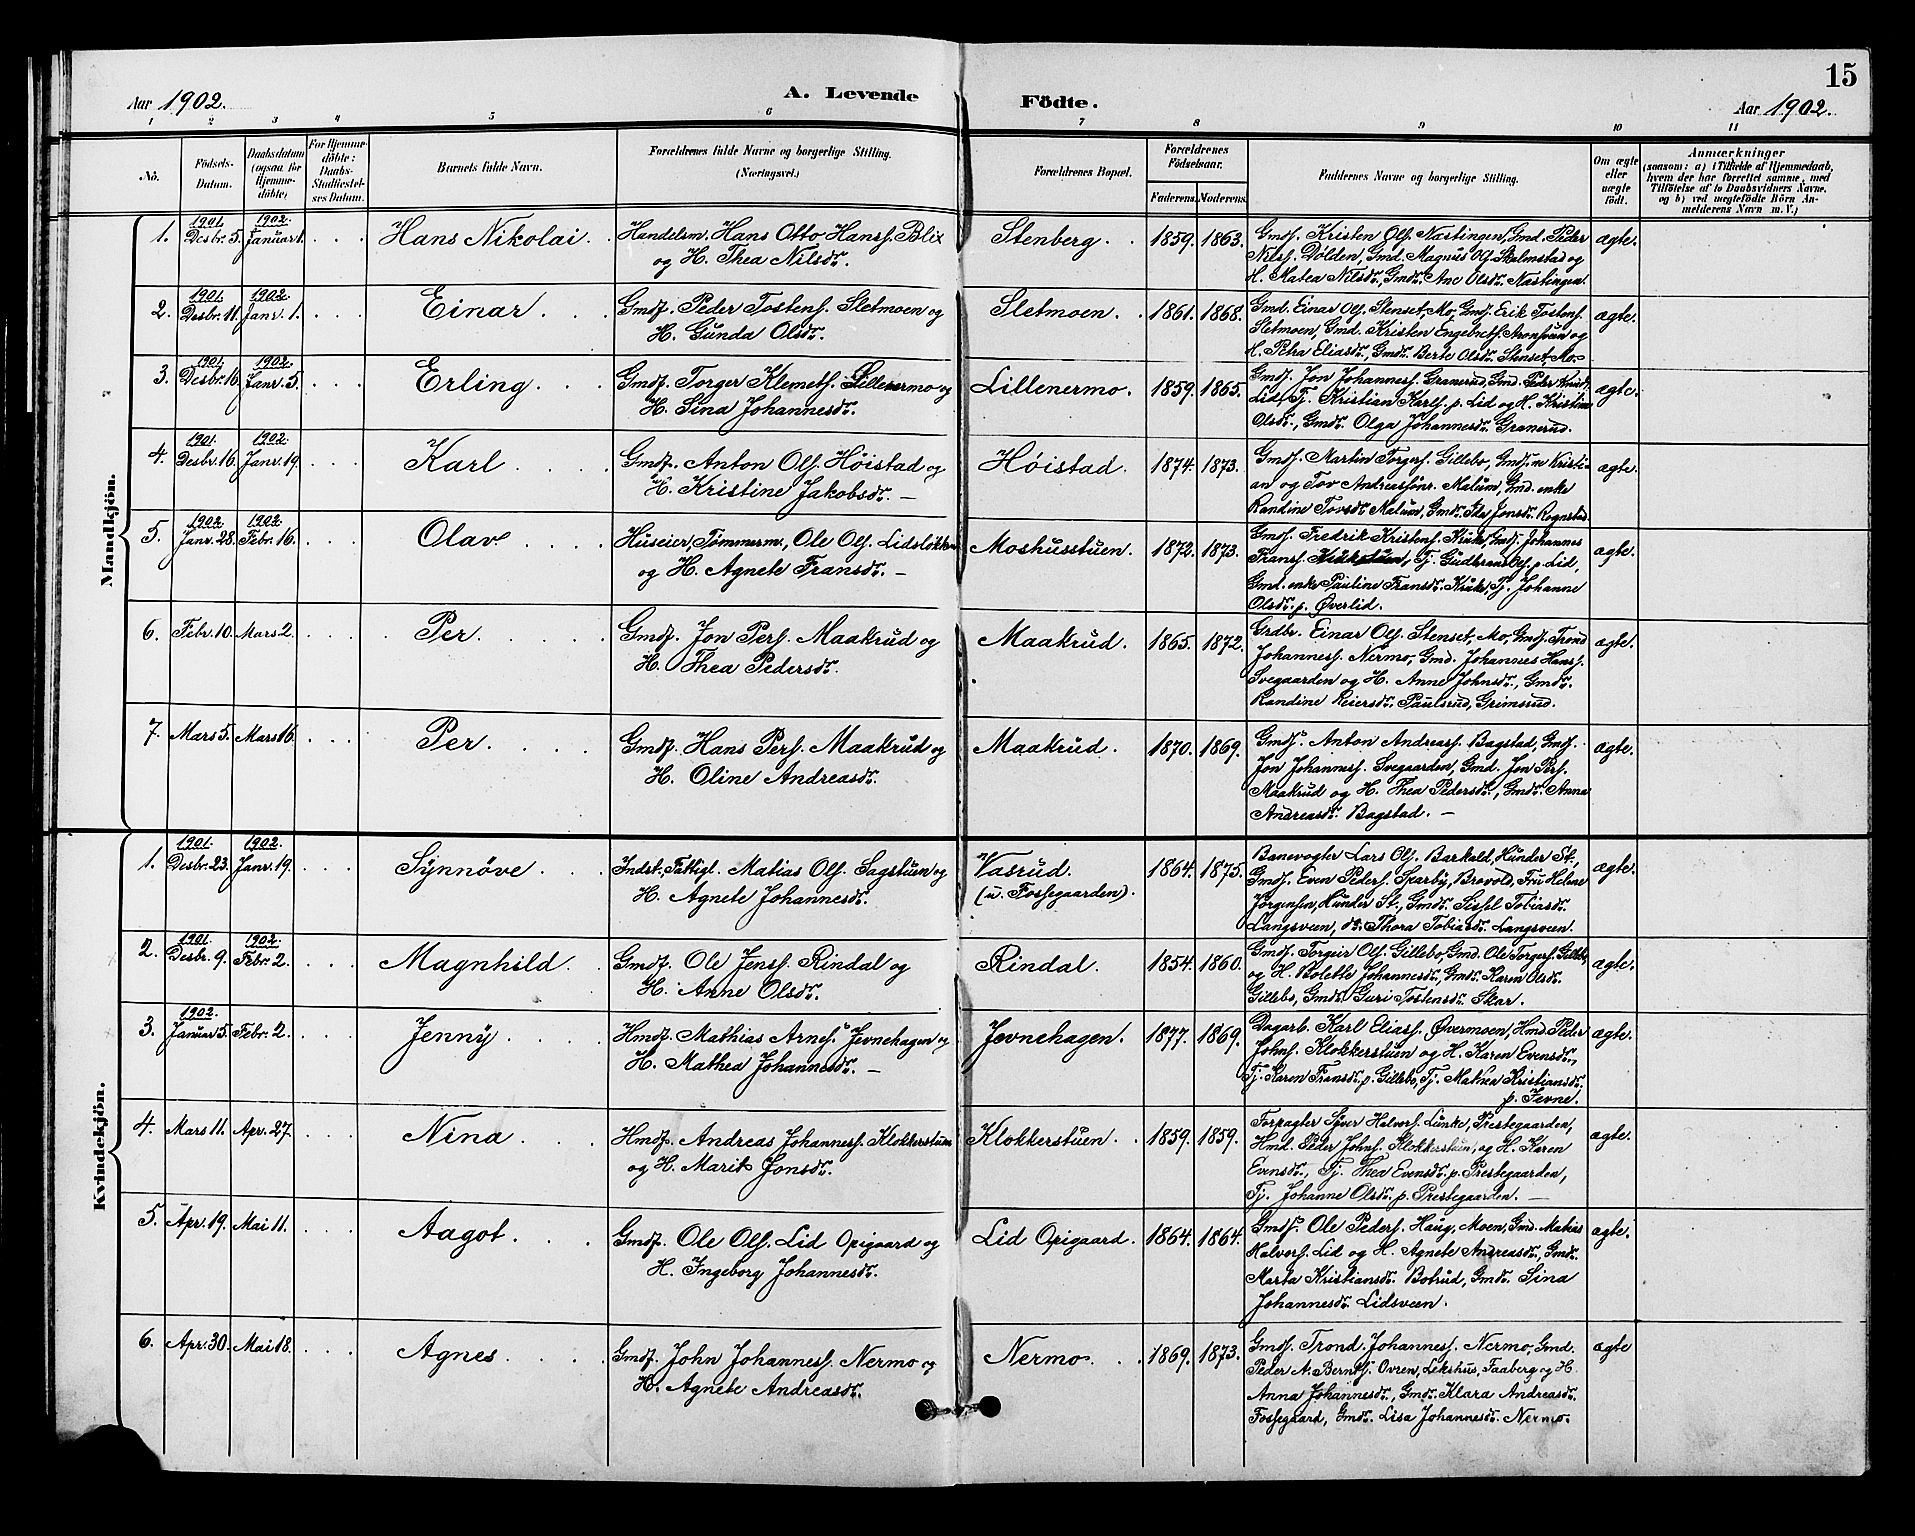 15
Aar 1902. A. Levende Födte. Aar 1902.
1 2 3 4 5 6 7 8 9 10 11
No. Födsels-Datum. Daabsdatum (ogsaa for Hjemme-döbte). For Hjemme-döbte: Daabs-Stadfæstel-ses Datum. Barnets fulde Navn. Forældrenes fulde Navne og borgerlige Stilling. (Næringsvei.) Forældrenes Bopæl. Forældrenes Födselsaar. Faderens. Moderens. Faddernes Navne og borgerlige Stilling. Om ægte eller uægte födt. Anmærkninger
(saasom: a) i Tilfælde af Hjemmedaab,
hvem der har forrettet samme, med
Tilföielse af to Daabsvidners Navne.
og b) ved uægtefödte Börn An-
melderens Navn m. V.)
Mandkjön.
1. 1901. Desbr. 5. 1902. Januar 1. Hans Nikolai. Handelsm. Hans Otto Hanss. Blix
og H. Thea Nilsdr. Stenberg. 1859. 1863. Gmdf. Kristen Ols. Nastingen, Gmd. Peder
Nilss. Dølden, Gmd. Magnus O. G. Skalmstad og
H. Matea Nilsdr., Gmdr. Ane Olsdr. Nastingen. ægte.
2. 1901. Desbr. 11. 1902. Janr. 1. Einar Gmdf. Peder Tostens. Sletmoen og
H. Gunda Olsdr. Sletmoen. 1861. 1868. Gmd. Einar Ols. Stenset, Mo, Gmdf. Erik Tostens.
Sletmoen, Gmd. Kristen Engebrets. og
H. Petra Eliasdr., Gmdr. Berte Olsdr. Stenset, Mo. ægte.
3. 1901. Desbr. 16. 1902. Janr. 5. Erling. Gmdf. Torger Klemets. Lillenermo og
H. Sina Johannesdr. Lillenermo. 1859. 1865. Gmdf. Jon Johanness. Granerud, Gmd. Peder Knuds.
Lid, Tj. Kristian Karls. p. Lid og H. Kristine
Olsdr., Gmdr. Olga Johannesdr. Granerud. ægte.
4. 1901. Desbr. 16. 1902. Janr. 19. Karl Gmdf. Anton Ols. Høistad og
H. Kristine Jakobsdr. — Høistad. 1874. 1873. Gmdf. Martin Torgers. Gillebo, Gmdf.m Kristi-
an og Tov Andreassønr. Malum, Gmd. enke
Randine Tovsdr. Malum, Gmdr. Jonsdr. Rognstad. ægte.
5. 1902. Janr. 28. 1902. Febr. 16. Olav Huseier, Tømmerm., Ole Ols. Lidsløkken
og H. Agnete Fransdr. — Moshusstuen. 1872. 1873. Gmdf. Fredrik Kristens. Kruke, Gmdf. Johannes
Franss. Tj. Gudbrand p. Lid,
Gmd. enke Pauline Fransdr. Kruke, Tj. Johanne
Olsdr. p. Øverlid. ægte.
6. Febr. 10. Mars 2. Per. Gmdf. Jon Pers. Maakrud og
H. Thea Pedersdr. Maakrud. 1865. 1872. Grdbr. Einar Ols. Stenset, Mo, Gmdf. Trond
Johanness. Nermo, Gmd. Johannes Hanss.
Svegaarden og H. Anne Johnsdr., Gmdr.
Randine Reiersdr. Paulsrud, Grimsrud. ægte.
7. Mars 5. Mars 16. Per Gmdf. Hans Pers. Maakrud og
H. Oline Andreasdr. Maakrud. 1870. 1869. Gmdf. Anton Andreass. Bagstad, Gmdf.
Jon Johanness. Svegaarden, Gmd. Jon Pers.
Maakrud og H. Thea Pedersdr., Gmdr. Anna
Andreasdr. Bagstad. — ægte.
Kvindekjön.
1. 1901. Desbr. 23. 1902. Janr. 19. Synnøve Indst., Fattigl. Matias Ols. Sagstuen og
H. Agnete Johannesdr. Vasrud.
(u. Fossegaarden). 1864. 1875. Banevogter Lars Ols. Barkald, Hunder St.,
Gmdf. Even Peders. Sparby, Brovold, Fru Helene
Jørgensen, Hunder St., Gmdr. Sissel Tobiasdr.
Langsveen, do. Thora Tobiasdr. Langsveen. ægte.
2. 1901. Desbr. 9. 1902. Febr. 2. Magnhild. Gmdf. Ole Jenss. Rindal og
H. Anne Olsdr. Rindal. 1854. 1860. Gmdf. Torgeir Ols. Gillebo, Gmd. Ole Torgers. Gillebo,
og H. Bolette Johannesdr., Gmdr. Karen Olsdr.
Gillebo, Gmdr. Guri Tostensdr. Skar. ægte.
3. 1902. Januar 5. Febr. 2. Jenny Hmdf. Mathias Arnes. Jevnehagen og
H. Mathea Johannesdr. — Jevnehagen. 1877. 1869. Dagarb. Karl Eliass. Øvermoen, Hmd. Peder
Johns. Klokkerstuen og H. Karen Evensdr.,
Tj. Karen Fransdr. p. Gillebo, Tj. Matea Kristiansdr.
p. Jevne. ægte.
4. Mars 11. Apr. 27. Nina Hmdf. Andreas Johanness. Klokkerstuen
og H. Marit Jonsdr. Klokkerstuen. 1859. 1859. Forpagter Syver Halvors. Lunke, Prestegaarden,
Hmd. Peder Johns. Klokkerstuen, og H. Karen
Evensdr., Tj. Thea Evensdr. p. Prestegaarden,
Tj. Johanne Olsdr. p. Prestegaarden. — ægte.
5. Apr. 19. Mai 11. Aagot. Gmdf. Ole Ols. Lid Opigaard og
H. Ingeborg Johannesdr. Lid Opigaard. 1864. 1864. Gmdf. Ole Peders. Haug, Moen, Gmd. Matias
Halvors. Lid og H. Agnete Andreasdr., Gmdr.
Marta Kristiansdr. Botrud, Gmdr. Sina
Johannesdr. Lidsveen. ægte.
6. Apr. 30. Mai 18. Agnes Gmdf. John Johanness. Nermo og
H. Agnete Andreasdr. Nermo. 1869. 1873. Gmdf. Trond Johanness. Nermo, Gmd.
Peder A. Bernts. Ovren, Lekshus, Faaberg og H.
Anna Johannesdr., Gmdr. Klara Andreasdr.
Fossegaard, Gmdr. Lisa Johannesdr. Nermo. ægte